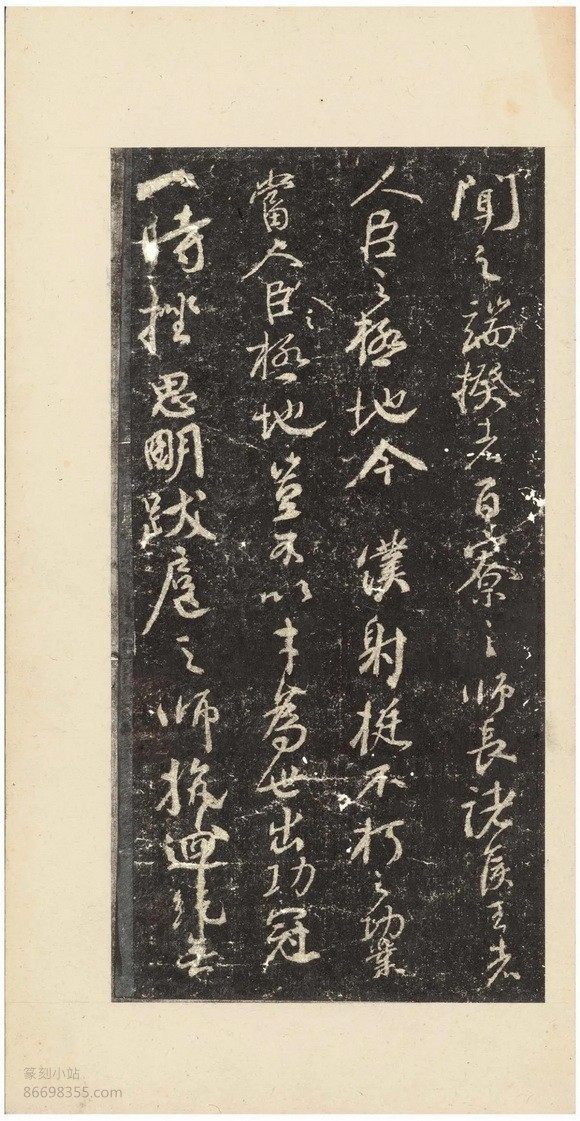 聞之端揆者百寮之師長諸侯王者
人臣之極地今僕射挺不朽之功業
當人臣之極地豈不以才為世出功冠
一時挫思明跋扈之師抗迴紇無
篆刻小站
86698355.com